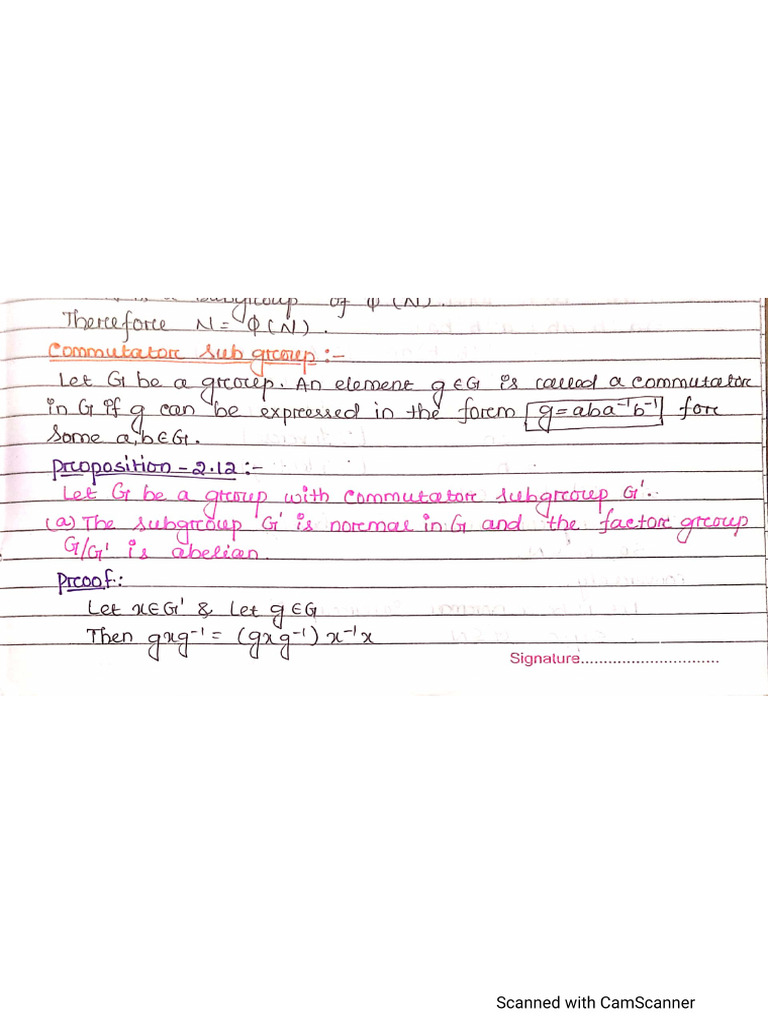 subgroup of φ(N).
Therefore N = φ(N).
Commutator sub group :-
Let G be a group. An element g∈G is called a commutator
in G if g can be expressed in the form g = aba⁻¹b⁻¹ for
some a,b∈G.
Proposition - 2.12 :-
Let G be a group with commutator subgroup G'.
(a) The subgroup G' is normal in G and the factor group
G/G' is abelian.
Proof :
Let x∈G' & Let g∈G
Then gxg⁻¹ = (gxg⁻¹) x⁻¹x
Signature..............................
Scanned with CamScanner